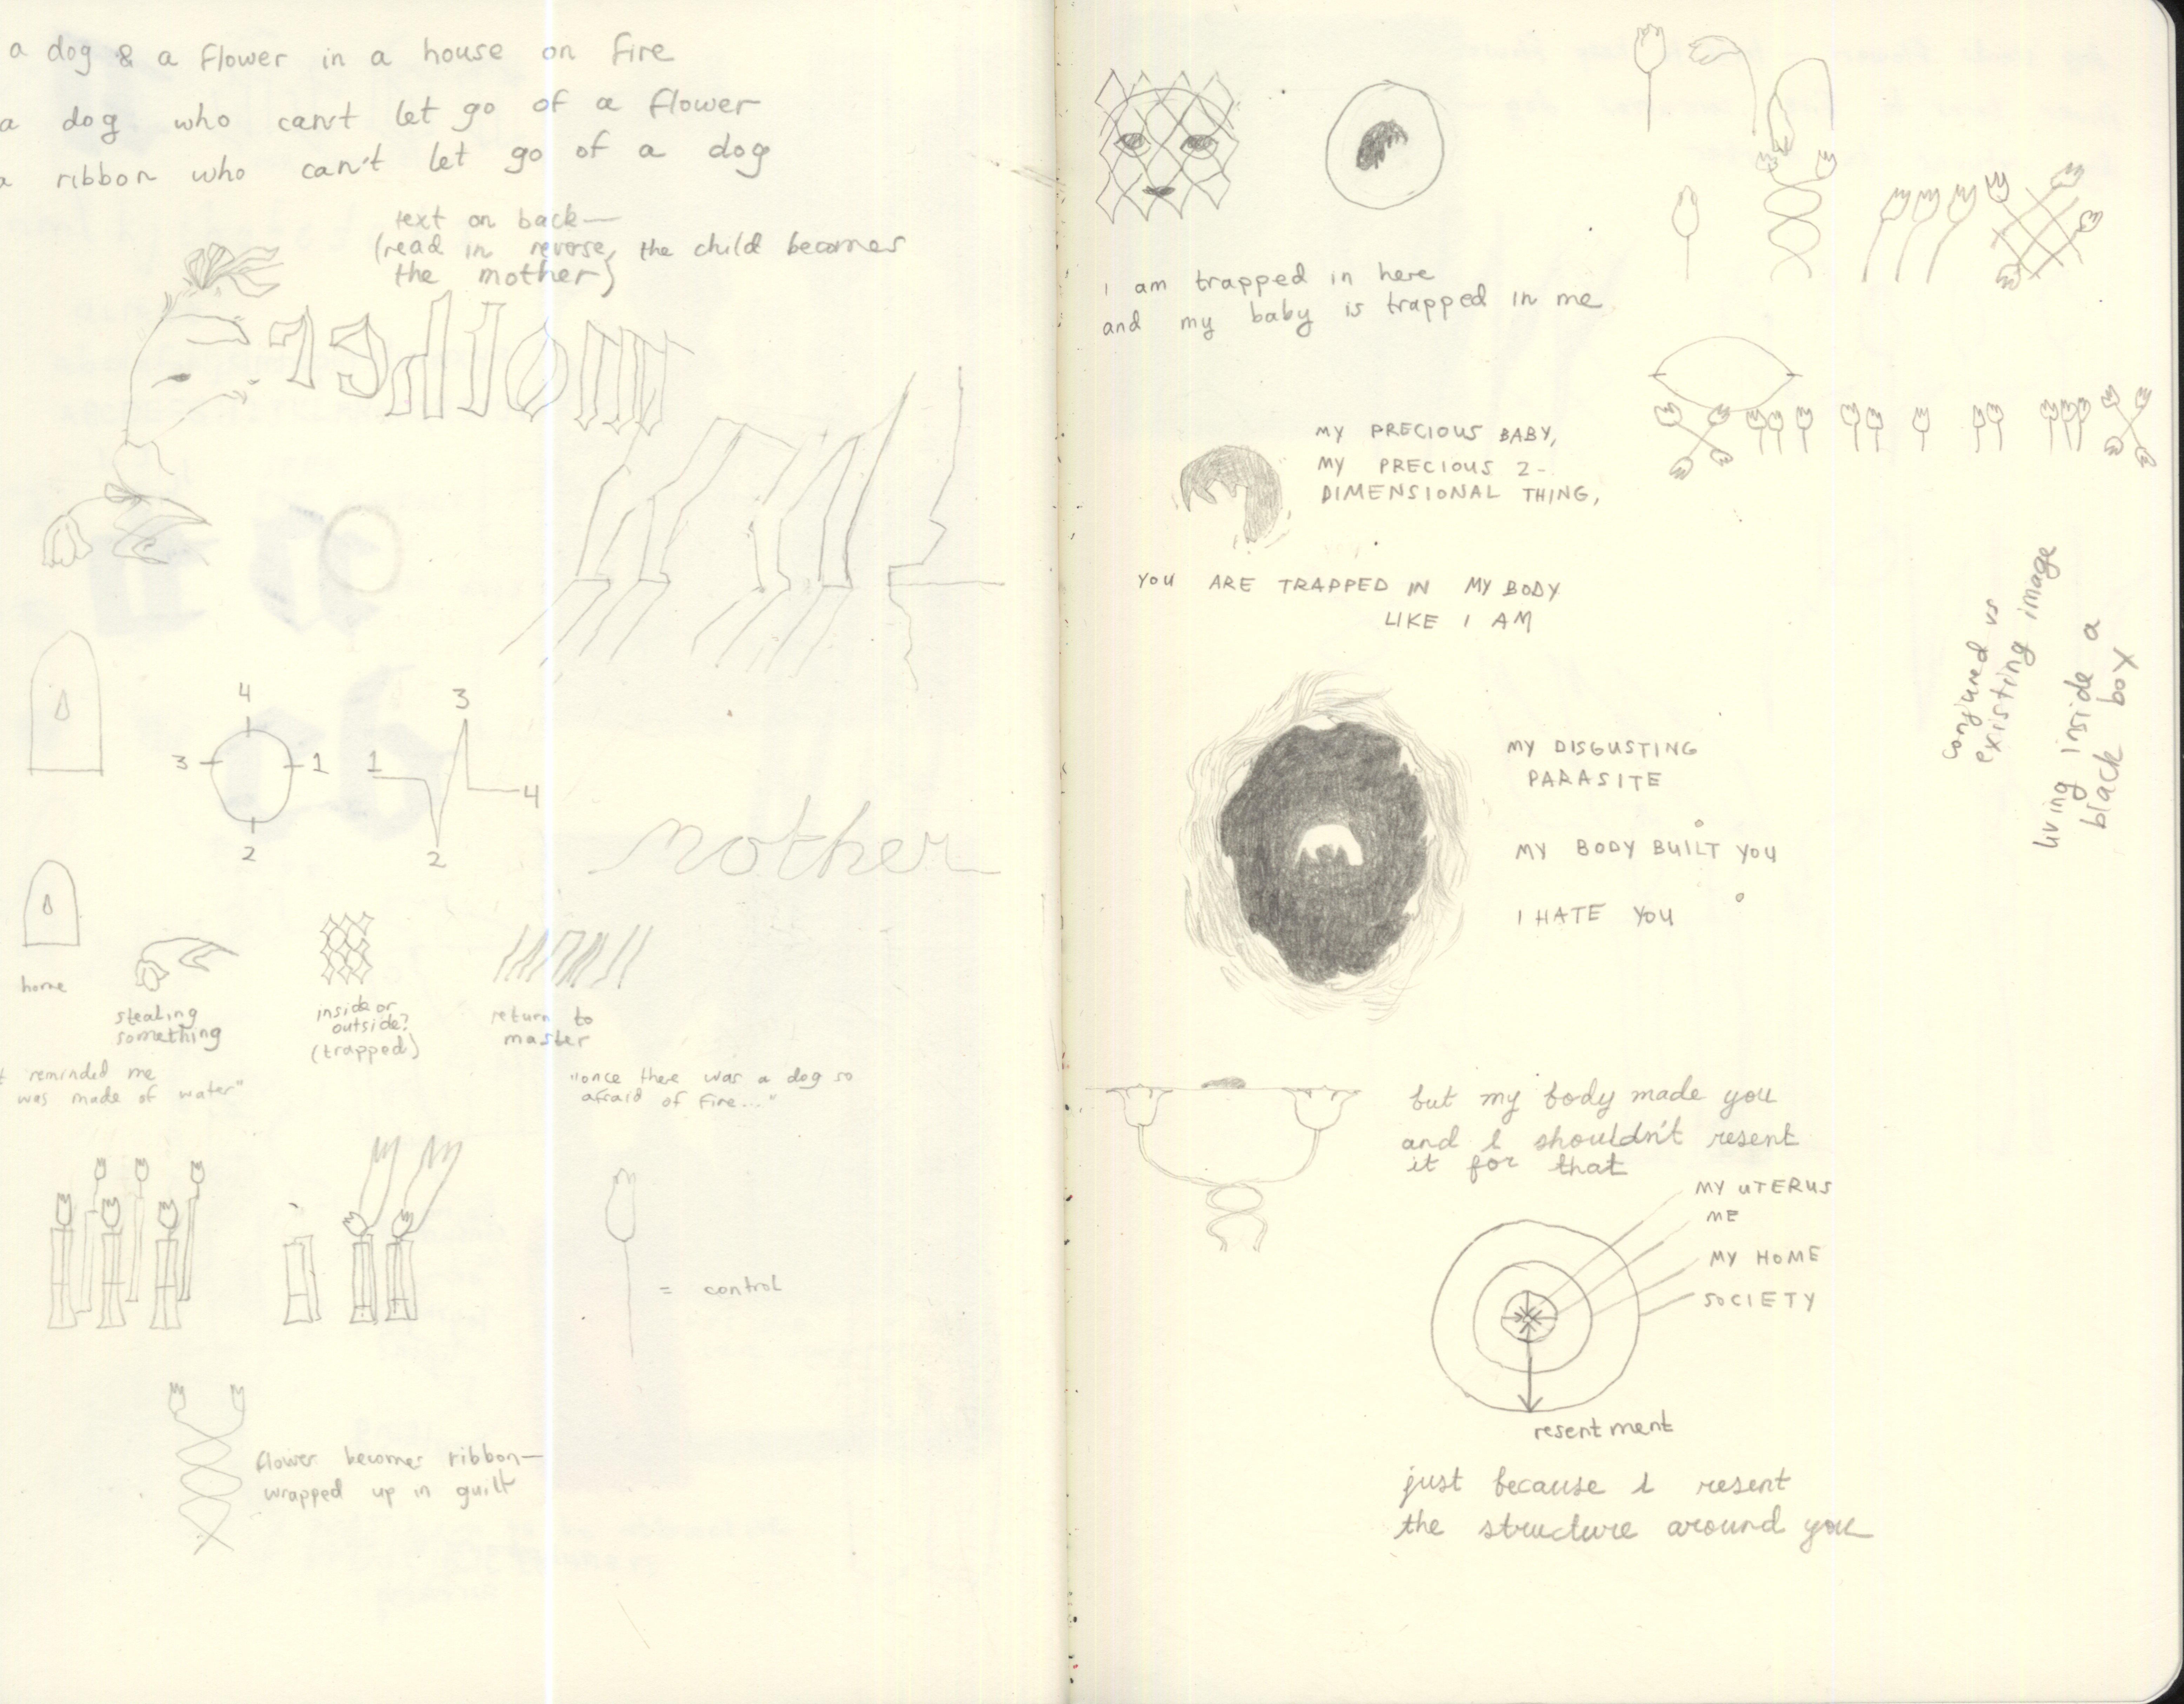 a dog & a flower in a house on fire
a dog who can't let go of a flower
a ribbon who can't let go of a dog
text on back—
(read in reverse, the child becomes
the mother)
mother
4
3 1
2
3
1
4
2
mother
home
stealing
something
inside or
outside?
(trapped)
return to
master
reminded me
was made of water"
"once there was a dog so
afraid of fire..."
= control
flower becomes ribbon—
wrapped up in guilt
i am trapped in here
and my baby is trapped in me
MY PRECIOUS BABY,
MY PRECIOUS 2-
DIMENSIONAL THING,
YOU ARE TRAPPED IN MY BODY
LIKE I AM
conjured vs
existing image
living inside a
black box
MY DISGUSTING
PARASITE
MY BODY BUILT YOU
I HATE YOU
but my body made you
and i shouldn't resent
it for that
MY UTERUS
ME
MY HOME
SOCIETY
resentment
just because i resent
the structure around you